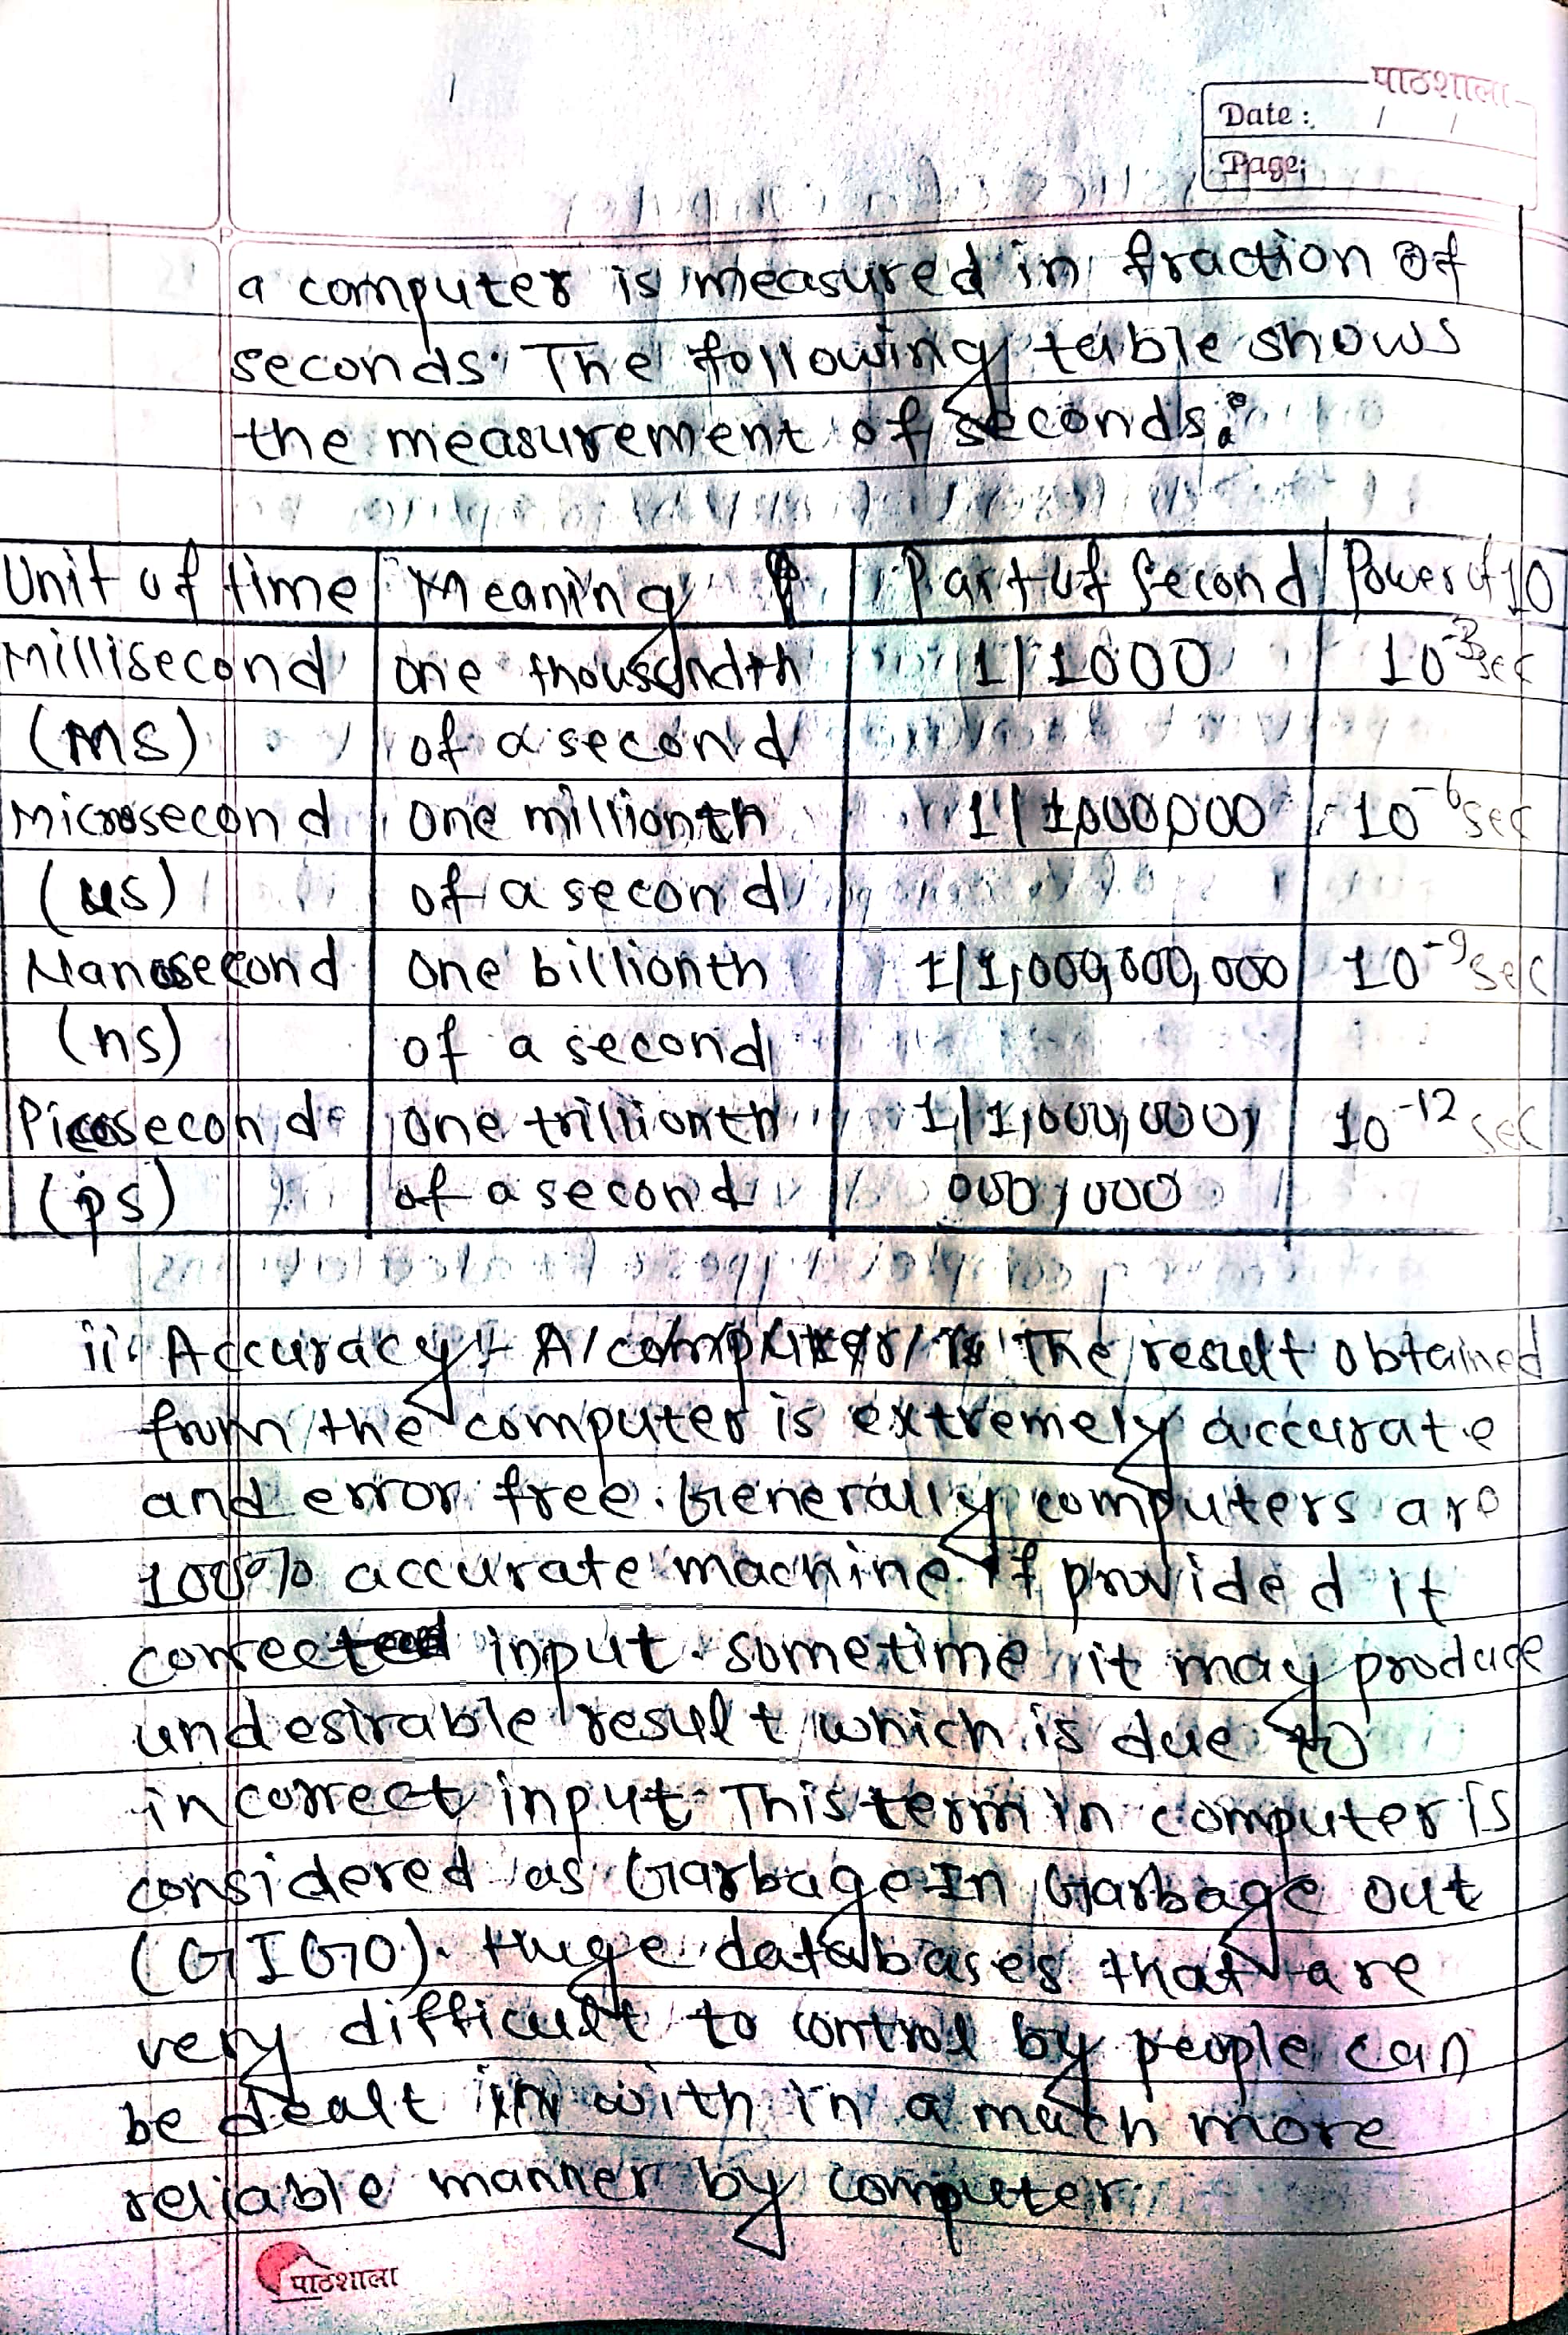 पाठशाला
Date: / /
Page:
a computer is measured in fraction of
seconds. The following table shows
the measurement of seconds:
Unit of time | Meaning | Part of Second | Power of 10
Millisecond | one thousandth | 1/1000 | 10⁻³sec
(ms) | of a second
Microsecond | one millionth | 1/1,000,000 | 10⁻⁶sec
(us) | of a second
Nanosecond | one billionth | 1/1,000,000,000 | 10⁻⁹sec
(ns) | of a second
Picosecond | one trillionth | 1/1,000,000, | 10⁻¹² sec
(ps) | of a second | 000,000
ii. Accuracy:- A computer is The result obtained
from the computer is extremely accurate
and error free. Generally computers are
100% accurate machine if provided it
correct input. sometime it may produce
undesirable result which is due to
incorrect input. This term in computer is
considered as Garbage In Garbage out
(GIGO). Huge databases that are
very difficult to control by people can
be dealt with in a much more
reliable manner by computer.
पाठशाला